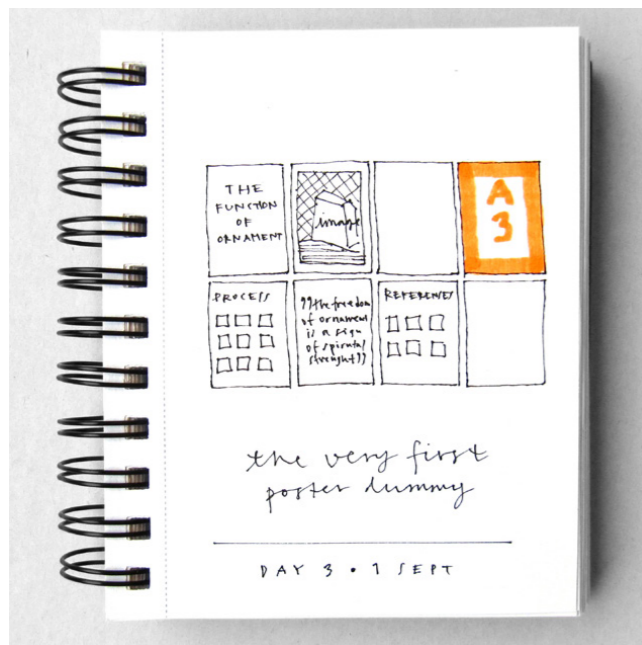 THE
FUNCTION
OF
ORNAMENT
image
A
3
PROCESS
"the freedom
of ornament
is a sign
of spirutal
strenght"
REFERENCES
the very first
poster dummy
DAY 3 • 1 SEPT